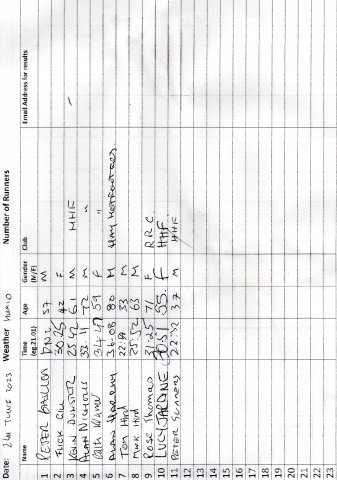 Date: 24th June 2023 Weather Humid Number of Runners
Name Time (eg 21:01) Age Gender (M/F) Club Email Address for results
1 PETER BRILLON DNF 57 M
2 FLICK 30.25 42 F
3 KEVIN 25.42 61 M HHF -
4 ALAN NICHOLS 33.11 72 M "
5 34.47 59 F "
6 33.08 80 M HAY HOTFOOTERS
7 TOM Hird 22:19 33 M
8 MWK Hird 25:52 63 M
9 ROSE Thomas 31.25 71 F RRC
10 LUCY JARDINE 30.51 55. F HHF
11 PETER 22:32 37 M HHF
12
13
14
15
16
17
18
19
20
21
22
23